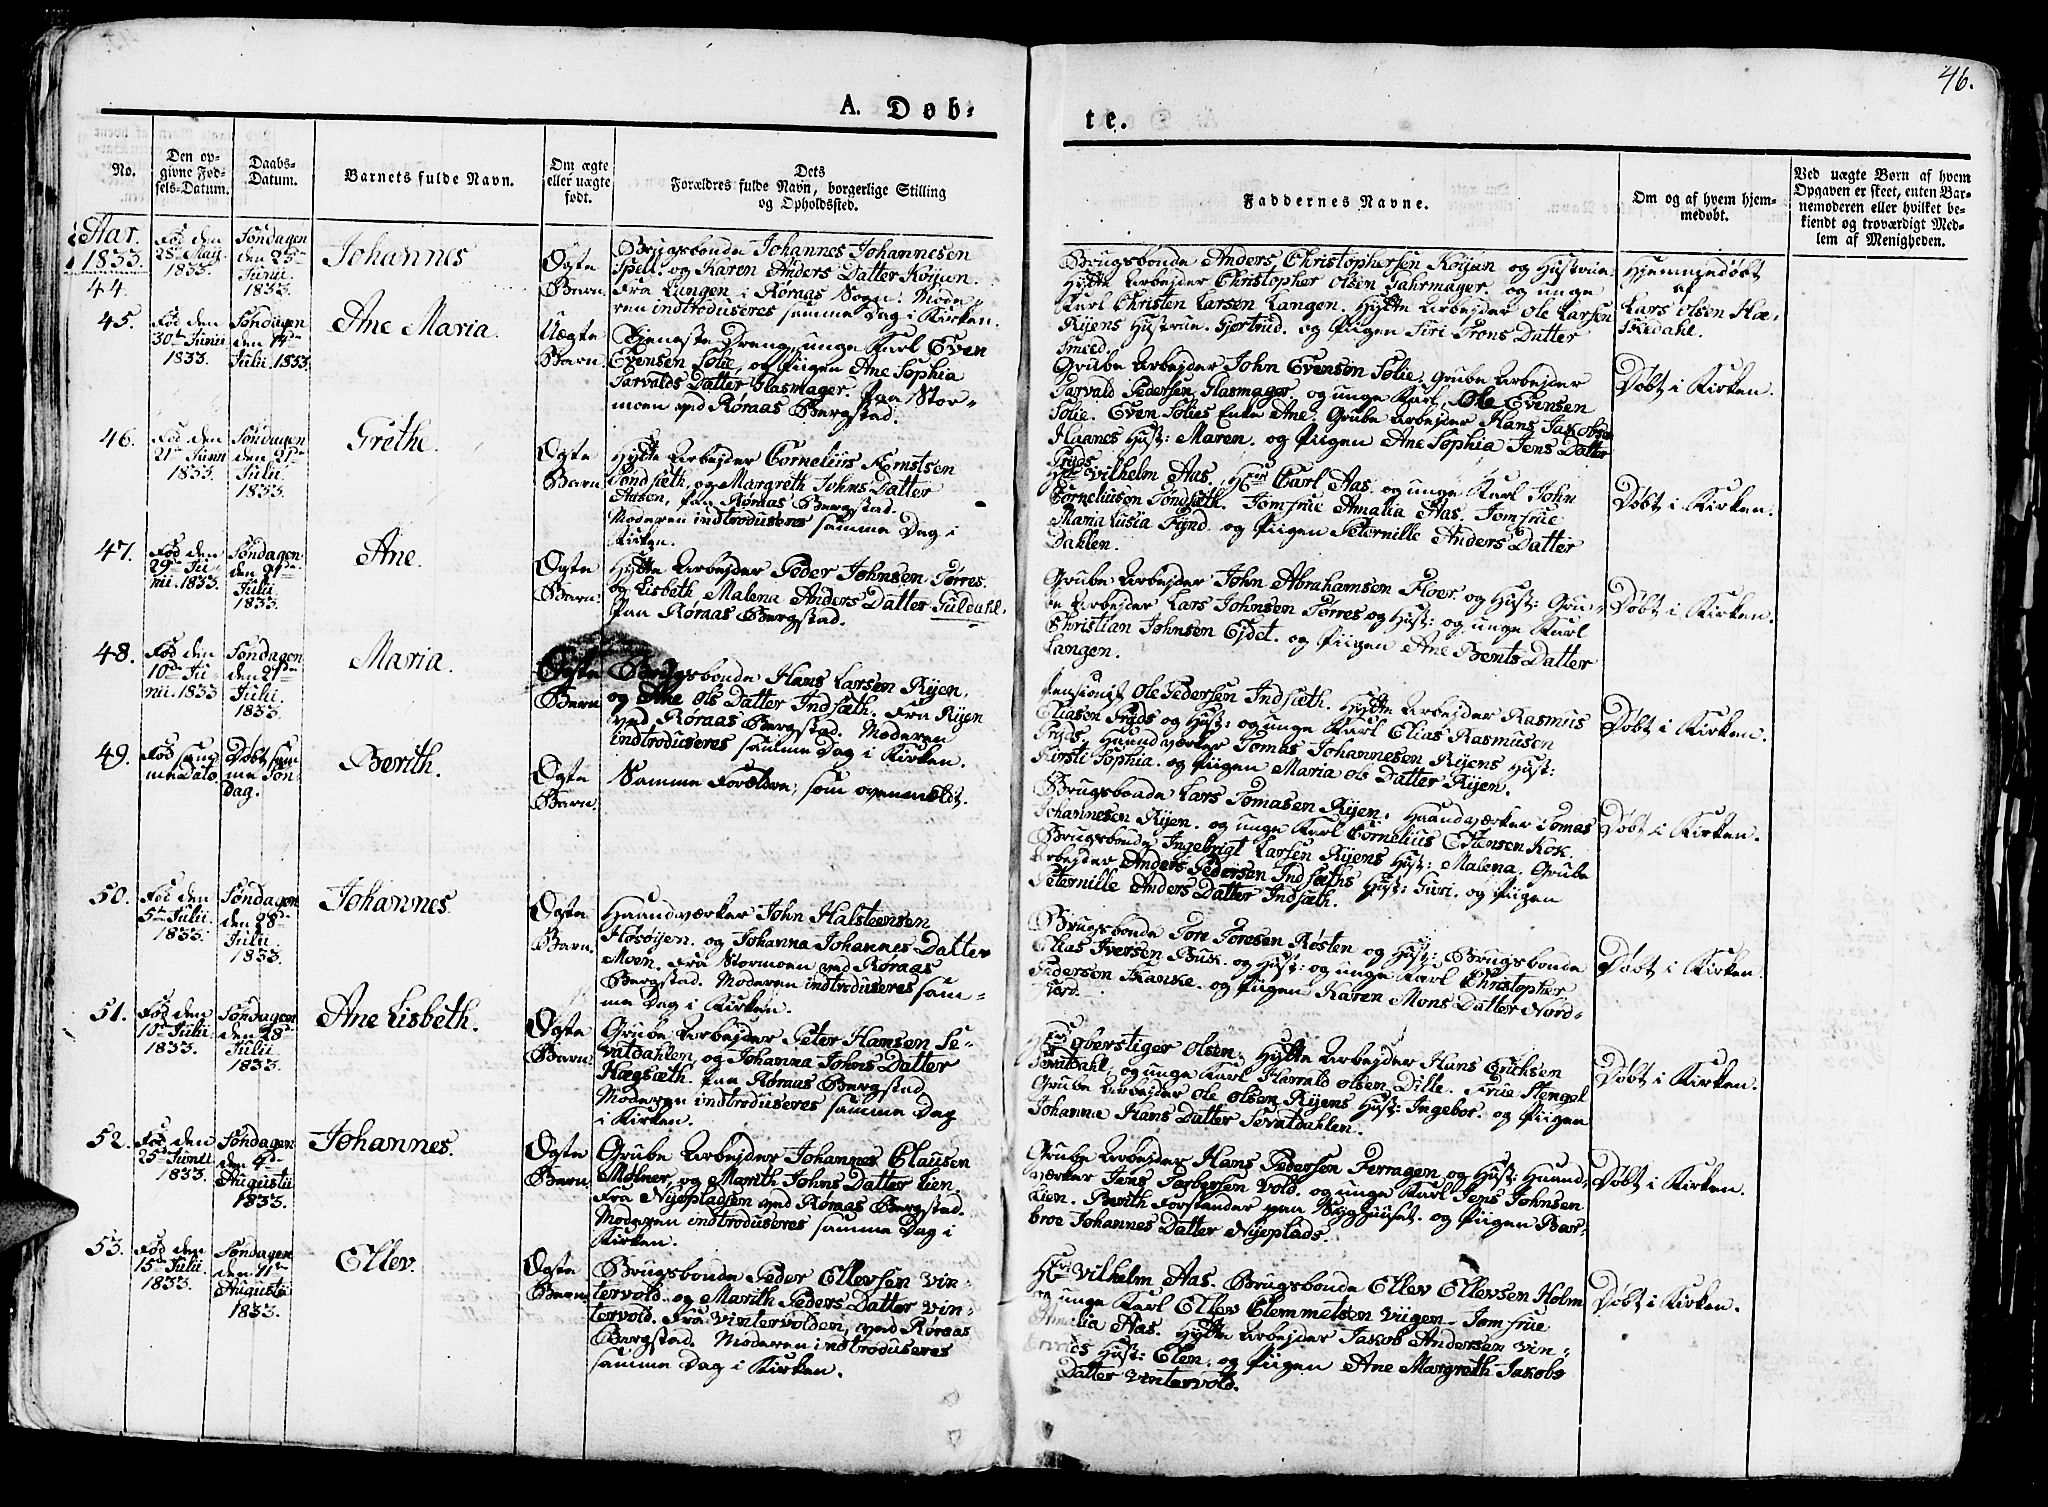 46.
A. Døb-
te.
No.
Den op-
givne Fød-
sels-Datum.
Daabs-
Datum.
Barnets fulde Navn.
Om ægte
eller uægte
født.
Dets
Forældres fulde Navn, borgerlige Stilling
og Opholdssted.
Faddernes Navne.
Om og af hvem hjem-
medøbt.
Ved uægte Børn af hvem
Opgaven er skeet, enten Bar-
nemoderen eller hvilket be-
kiendt og troværdigt Med-
lem af Menigheden.
Aar.
1833.
44.
Fød den
1833.
Søndagen
den 23de
Junii
1833.
Johannes
Ægte
Barn.
Brugsbonde Johannes Johannesen
Spell. og Karen Anders Datter Kojun.
Fra Langen i Røraas Sogn: Mode-
ren indtroduseres samme Dag i Kirken.
Brugsbonde Anders Christophersen Kojun og Hustrue.
Hytte Arbejder Christopher Olsen Jahrmager. og unge
Karl Christen Larsen Langen. Hytte Arbejder Ole Larsen
Ryens Hustrue. Gjertrud. og Piigen Siri Trons Datter
Smed.
Hjemmedøbt
af
Lars Olsen
45.
Fød den
30te Junii
1833.
Søndagen
den 14de
Julii. 1833.
Ane Maria.
Uægte
Barn.
Tjeneste Dreng, unge Karl Even
Evensen Solie, og Piigen Ane Sophia
Tarvalds Datter Glasmager. Paa Stor-
moen ved Røraas Bergstad.
Grube Arbejder John Evensen Solie. Grube Arbejder
Tarvald Pedersen Glasmager og unge Karl, Ole Evensen
Solie. Even Solies Enke Ane. Grube Arbejder Hans Jakobsen
Haanes Hust: Maren. og Piigen Ane Sophia Jens Datter
Fryds.
Døbt i Kirken.
46.
Fød den
21de Junii
1833.
Søndagen
den 21de
Julii.
1833.
Grethe.
Ægte
Barn
Hytte Arbejder Cornelius Ernstsen
Tøndsæth, og Margreth Johns Datter
Aasen, paa Røraas Bergstad.
Moderen indtroduseres samme Dag i
Kirken.
Hr Vilhelm Aas. Hr Carl Aas. og unge Karl John
Corneliusen Tøndsæth. Jomfrue Amalia Aas. Jomfrue
Maria Lusia Fynd. og Piigen Peternille Anders Datter
Dahlen.
Døbt i Kirken.
47.
Fød den
29de Ju-
nii. 1833.
Søndagen
den 21de
Julii.
1833.
Ane.
Ægte
Barn.
Hytte Arbejder Peder Johnsen Torres.
og Lisbeth Malena Anders Datter Guldahl.
Paa Røraas Bergstad.
Grube Arbejder John Abrahamsen Floer. og Hust: Gru-
be Arbejder Lars Johnsen Torres og Hust: og unge Karl
Christian Johnsen Ejdet. og Piigen Ane Bents Datter
Langen.
Døbt i Kirken.
48.
Fød den
10de Ju-
nii. 1833
Søndagen
den 21de
Julii.
1833.
Maria.
Ægte
Barn
Brugsbonde Hans Larsen Ryen,
og Ane Ols Datter Indsæth. Fra Ryen
ved Røraas Bergstad. Moderen
indtroduseres samme Dag i Kirken.
Pensionist Ole Pedersen Indsæth. Hytte Arbejder Rasmus
Eliasen Fryds og Hust: og unge Karl Elias Rasmusen
Fryds. Haandværker Tomas Johannesen Ryens Hust:
Kirsti Sophia. og Piigen Maria Ols Datter Ryen.
Døbt i Kirken.
49.
Fød sam-
me Dato
Døbt sam-
me Søn-
dag.
Berith.
Ægte
Barn.
Samme Forældre, som ovenmeldt.
Brugsbonde Lars Tomasen Ryen. Haandværker Tomas
Johannesen Ryen. og unge Karl Cornelius Estensen Kok.
Brugsbonde Ingebrigt Larsen Ryens Hust: Malena. Grube
Arbejder Anders Pedersen Indsæths Hust: Guri. og Piigen
Peternille Anders Datter Indsæth.
Døbt i Kirken.
50.
Fød den
5te Julii
1833.
Søndagen
den 28de
Julii.
1833.
Johannes.
Ægte
Barn.
Haandværker John Halsteensen
Høsøien. og Johanna Johannes Datter
Moen. Fra Stormoen ved Røraas
Bergstad. Moderen indtroduseres sam-
me Dag i Kirken.
Brugsbonde Tore Toresen Røsten og Hust: Brugsbonde
Elias Iversen Busk. og Hust: og unge Karl Christopher
Pedersen Skanke. og Piigen Karen Mons Datter Nord-
Døbt i Kirken.
51.
Fød den
10de Julii
1833.
Søndagen
den 28de
Julii
1833.
Ane Lisbeth.
Ægte
Barn.
Grube Arbejder Peter Hansen Se-
vatdahlen, og Johanna Johns Datter
Hægsæth. paa Røraas Bergstad
Moderen indtroduseres samme Dag
i Kirken.
Oberstiger Olsen. Hytte Arbejder Hans Erichsen
og unge Karl Harrald Olsen Dille. Frue Stengel
Grube Arbejder Ole Olsen Ryens Hust: Ingebor. og Piigen
Johanna Hans Datter Sevatdahlen.
Døbt i Kirken.
52.
Fød den
25de Junii
1833.
Søndagen
den 4de
Augusti
1833.
Johannes.
Ægte
Barn.
Grube Arbejder Johannes Clausen
Mølner, og Marith Johns Datter Lien,
Fra Nyepladsen ved Røraas Bergstad.
Moderen indtroduseres samme Dag i
Kirken.
Grube Arbejder Hans Pedersen Ferragen, og Hust: Haand-
værker Jens Torbersen Vold. og unge Karl Jens Johnsen
Lien. Berith Forstander paa Syghuuset. og Piigen Bar-
broe Johannes Datter Nyeplads.
Døbt i Kirken.
53.
Fød den
15de Julii
1833.
Søndagen
den 11te
Augusti
1833.
Ellev.
Ægte
Barn.
Brugsbonde Peder Ellevsen Vin-
tervold. og Marith Peders Datter Vin-
tervold. Fra Vintervolden, ved Røraas
Bergstad. Moderen indtroduseres
samme Dag i Kirken.
Hr Vilhelm Aas. Brugsbonde Ellev Ellevsen Holm
og unge Karl Ellev Clemmetsen Viigen. Jomfrue
Amalia Aas. Hytte Arbejder Jakob Andersen Vin-
Hust: Elen. og Piigen Ane Margreth Jakobs
Datter Vintervold.
Døbt i Kirken.